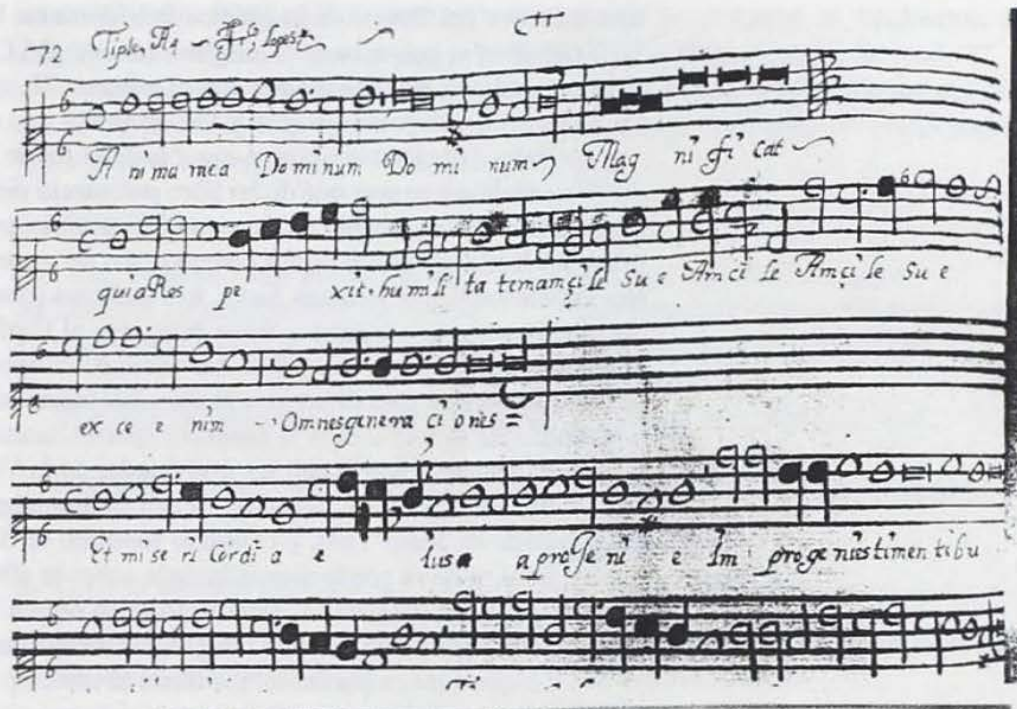 72 Tiple, A4 – Fco Lopes
Anima mea Dominum Dominum Magnificat
quia Respexit humilitatem amçile Sue Amçile Amçile Sue
ex ce enim Omnes generaciones =
Et misericordia eius a progenie Im progenies timentibu